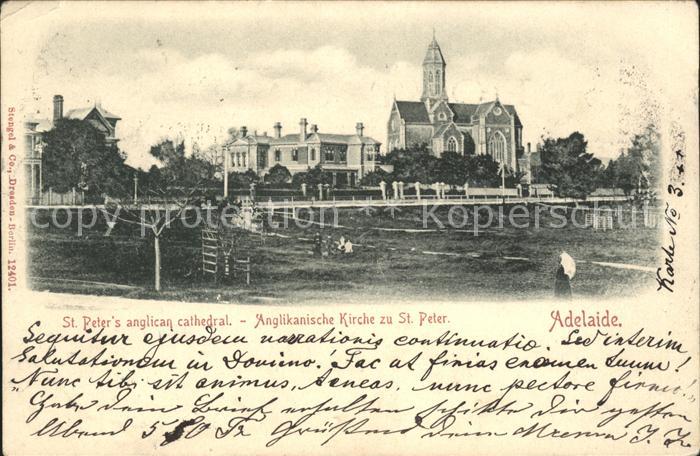 Stengel & Co., Dresden - Berlin. 12401.
copy protection Kopierschutz
Karte No 3.
St. Peter's anglican cathedral. - Anglikanische Kirche zu St. Peter.
Adelaide.
Sequitur ejusdem narrationis continuatio. Sed interim
Salutationem in Domino! Fac at finias examen tuum!
"Nunc tibi sit animus, Aeneas, nunc pectore firmo"
Habe dein Brief erhalten schikte dir gestern
Abend 5 Grüssend deine